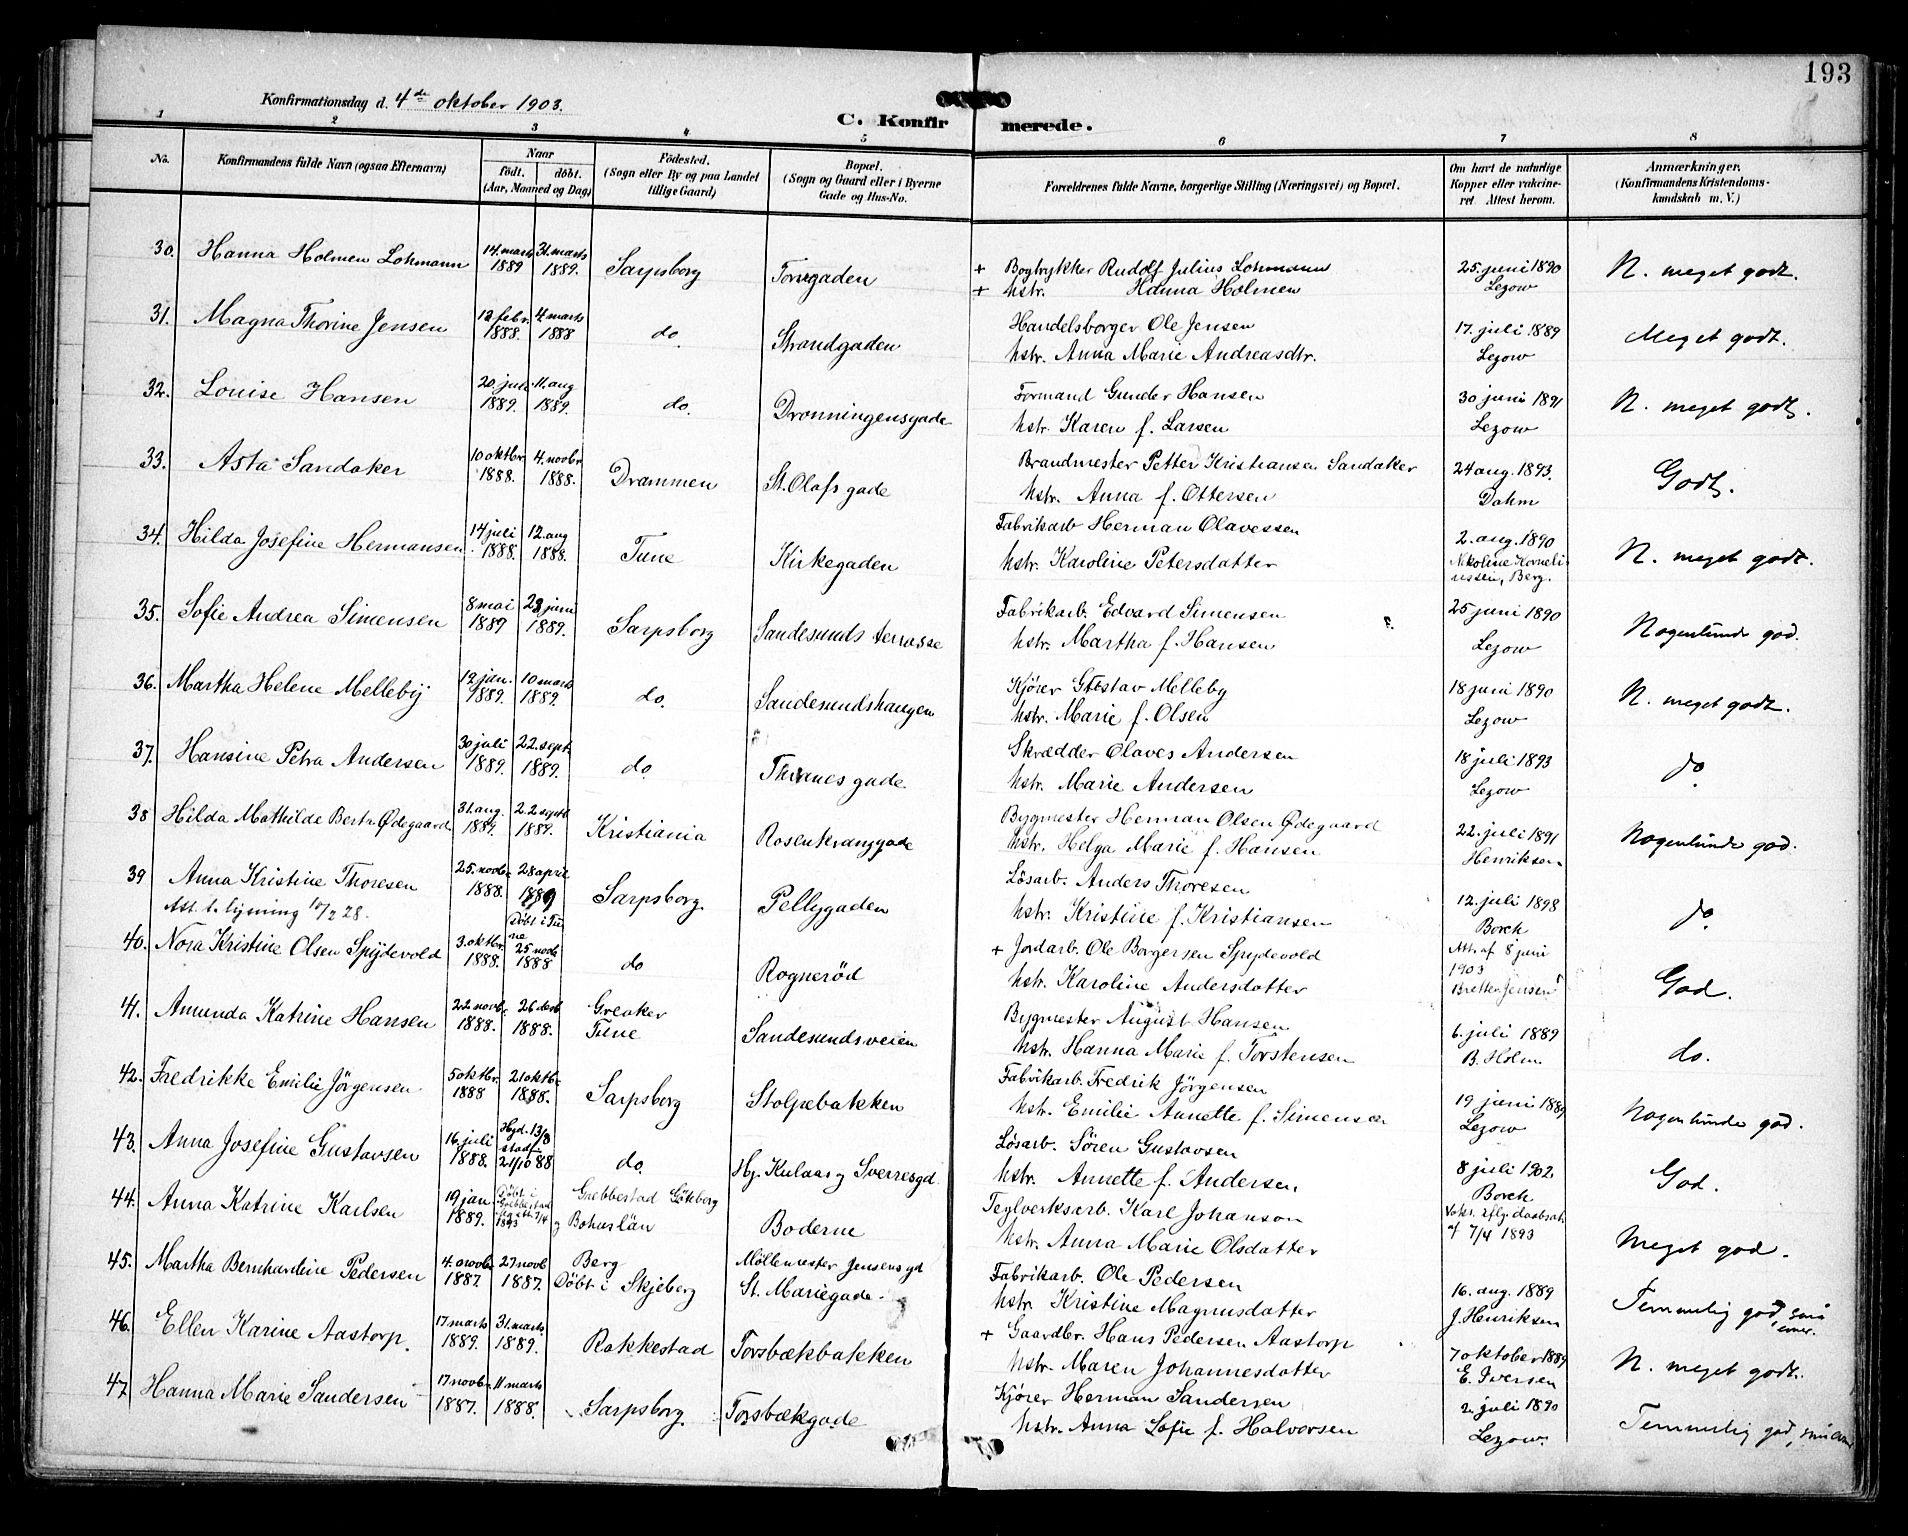 193
Konfirmationsdag d. 4de oktober 1903.
C. Konfirmerede.
1 2 3 4 5 6 7 8
No. Konfirmandens fulde Navn (ogsaa Efternavn) Naar født. døbt. (Aar, Maaned og Dag) Fødested. (Sogn eller By og paa Landet tillige Gaard) Bopæl. (Sogn og Gaard eller i Byerne Gade og Hus-No. Forældrenes fulde Navne, borgerlige Stilling (Næringsvei) og Bopæl. Om havt de naturlige Kopper eller vakcineret. Attest herom. Anmærkninger. (Konfirmandens Kristendomskundskab m. V.)
30. Hanna Holmen Lohmann 14. marts 1889 31. marts 1889. Sarpsborg Torvegaden + Bogtrykker Rudolf Julius Lohmann + hstr. Hanna Holmen 25. juni 1890 Lezow N. meget godt.
31. Magna Thorine Jensen 12 febr. 1888. 4. marts 1888 do. Strandgaden Handelsborger Ole Jensen hstr. Anna Marie Andreasdtr. 17. juli 1889 Lezow Meget godt.
32. Louise Hansen 20. juli 1889. 11. aug 1889. do. Dronningensgade Formand Gunder Hansen hstr. Karen f. Larsen 30 juni 1891 Lezow N. meget godt.
33. Asta Sandaker 10 oktbr. 1888. 4. novbr. 1888. Drammen St. Olafs gade Brandmester Petter Kristiansen Sandaker hstr. Anna f. Ottersen 24 aug. 1893. Dahm Godt.
34. Hilda Josefine Hermansen 14 juli 1888. 12. aug 1888. Tune Kirkegaden Fabrikarb Herman Olavessen hstr. Karoline Petersdatter 2. aug. 1890 Nikoline Kornelinssen, Berg. N. meget godt.
35. Sofie Andrea Simensen 8 mai 1889 23 juni 1889. Sarpsborg Sandesunds terrasse Fabrikarb. Edvard Simensen hstr. Martha f. Hansen 25 juni 1890 Lezow Nogenlunde god.
36. Martha Helene Melleby 12 jan. 1889. 10 marts 1889. do. Sandesundshaugen Kjører Gustav Melleby hstr. Marie f. Olsen 18 juni 1890 Lezow N. meget godt.
37. Hansine Petra Andersen 30 juli 1889. 22. sept 1889. do Thranes gade Skrædder Olaves Andersen hstr. Marie Andersen 18 juli 1893 Lezow do.
38 Hilda Mathilde Bertr. Ødegaard 31. aug. 1889. 22. septb 1889. Kristiania Rosenkranzgade Bygmester Herman Olsen Ødegaard hstr. Helga Marie f. Hansen 22. juli 1891 Henriksen Nogenlunde god.
39 Anna Kristine Thoresen 25. novbr. 1888. 28 april 1889 Sarpsborg. Pellygaden Løsarb. Anders Thoresen hstr. Kristine f. Kristiansen 12. juli 1898 Borch do.
Att. t. lysning 10/2 28.
40. Nora Kristine Olsen Spydevold 3. oktbr. 1888. Døbt i Tune 25 novb 1888 do Rognerød + Jordarb. Ole Borgersen Spydevold hstr. Karoline Andersdatter Att. af 8 juni 1903 Brette Jensen God.
41. Amunda Katrine Hansen 22 novb. 1888. 26 decb 1888. Greaker Tune Sandesundsveien Bygmester August Hansen hstr. Hanna Marie f. Torstensen 6. juli 1889 B. Holm do.
42. Fredrikke Emilie Jörgensen 5 oktbr. 1888 21 oktbr. 1888. Sarpsborg Stolpebakken Fabrikarb. Fredrik Jörgensen hstr. Emilie Annette f. Simensen 19 juni 1889 Lezow Nogenlunde god.
43. Anna Josefine Gustavsen 16. juli 1888. Hjd. 13/8 stadf. 21/10 88 do. Hj. Kulaas og Sverresgd. Løsarb. Sören Gustavsen hstr. Annette f. Andersen 8 juli 1902. Borch God.
44. Anna Katrine Karlsen 19 jan 1889. Døbt i Grebbestad 7/4 1893 Grebbestad Göteborg og Bohuslän Boderne Teglverksarb. Karl Johanson hstr. Anna Marie Olsdatter Vakc. iflg. daabsatt af 7/4 1893 Meget god.
45. Martha Bernhardine Pedersen 4. novbr. 1887. 27 novb 1887. Berg Døbt i Skjeberg Möllemester Jensensgd St. Mariegade. Fabrikarb. Ole Pedersen hstr. Kristine Magnusdatter 16. aug. 1889 J. Henriksen Temmelig god,
46. Ellen Karine Aastorp. 17 marts 1889. 31. marts. 1889. Rakkestad Torsbækbakken + Gaardbr. Hans Pedersen Aastorp hstr. Maren Johannesdatter 7 oktober 1889 E. Iversen N. meget godt.
47 Hanna Marie Sandersen 17 novb. 1887. 11 marts 1888. Sarpsborg Torsbækgade Kjører Herman Sandersen hstr. Anna Sofie f. Halvorsen 2. juli 1890 Lezow. Temmelig god,